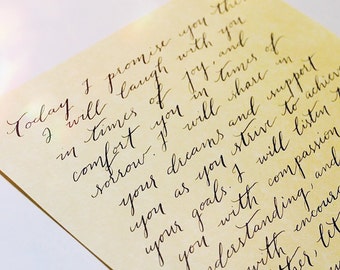 Today I promise you
I will laugh with you
in times of joy, and
comfort you in times of
sorrow. I will share in
your dreams and support
you as you strive to achieve
your goals. I will listen
you with compassion
understanding, and
with